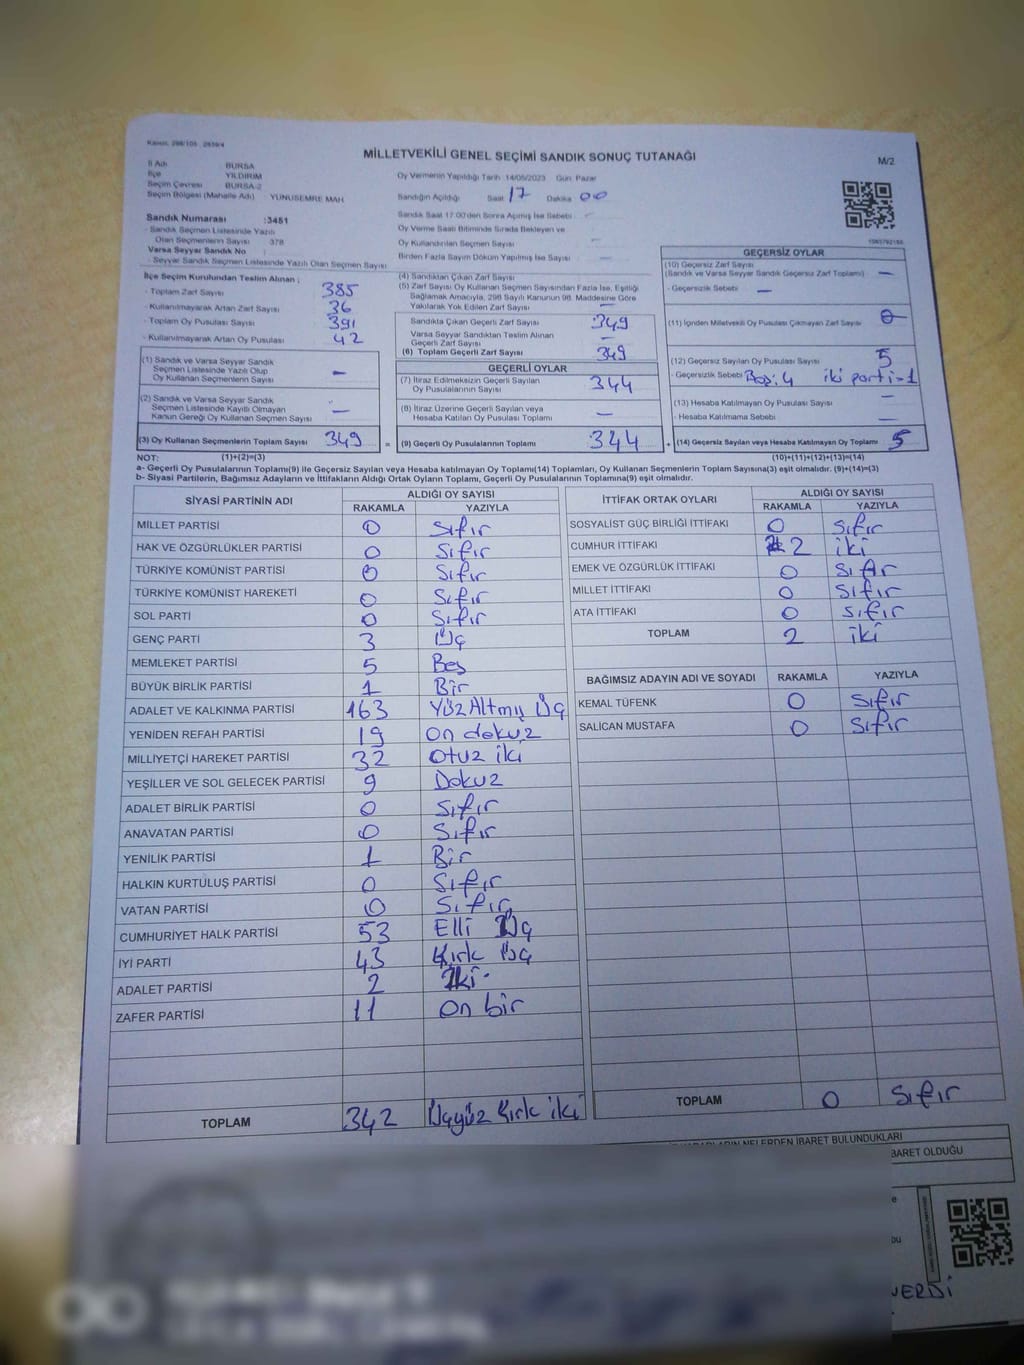 Kanun: 298/105 2839/4
MİLLETVEKİLİ GENEL SEÇİMİ SANDIK SONUÇ TUTANAĞI
M/2
İl Adı BURSA
İlçe YILDIRIM
Seçim Çevresi BURSA-2
Seçim Bölgesi (Mahalle Adı) YUNUSEMRE MAH.
Sandık Numarası :3451
- Sandık Seçmen Listesinde Yazılı
Olan Seçmenlerin Sayısı 378
Varsa Seyyar Sandık No
- Seyyar Sandık Seçmen Listesinde Yazılı Olan Seçmen Sayısı
Oy Vermenin Yapıldığı Tarih 14/05/2023 Gün Pazar
Sandığın Açıldığı Saat 17 Dakika 00
Sandık Saat 17.00'den Sonra Açılmış İse Sebebi -
Oy Verme Saati Bitiminde Sırada Bekleyen ve
Oy Kullandırılan Seçmen Sayısı -
Birden Fazla Sayım Döküm Yapılmış İse Sayısı -
İlçe Seçim Kurulundan Teslim Alınan ;
- Toplam Zarf Sayısı 385
- Kullanılmayarak Artan Zarf Sayısı 36
- Toplam Oy Pusulası Sayısı 391
- Kullanılmayarak Artan Oy Pusulası 42
(1) Sandık ve Varsa Seyyar Sandık
Seçmen Listesinde Yazılı Olup
Oy Kullanan Seçmenlerin Sayısı -
(2) Sandık ve Varsa Seyyar Sandık
Seçmen Listesinde Kayıtlı Olmayan
Kanun Gereği Oy Kullanan Seçmen Sayısı -
(3) Oy Kullanan Seçmenlerin Toplam Sayısı 349
(4) Sandıktan Çıkan Zarf Sayısı
(5) Zarf Sayısı Oy Kullanan Seçmen Sayısından Fazla İse, Eşitliği
Sağlamak Amacıyla, 298 Sayılı Kanunun 98. Maddesine Göre
Yakılarak Yok Edilen Zarf Sayısı -
Sandıkta Çıkan Geçerli Zarf Sayısı 349
Varsa Seyyar Sandıktan Teslim Alınan
Geçerli Zarf Sayısı -
(6) Toplam Geçerli Zarf Sayısı 349
GEÇERLİ OYLAR
(7) İtiraz Edilmeksizin Geçerli Sayılan
Oy Pusulalarının Sayısı 344
(8) İtiraz Üzerine Geçerli Sayılan veya
Hesaba Katılan Oy Pusulası Toplamı -
= (9) Geçerli Oy Pusulalarının Toplamı 344
GEÇERSİZ OYLAR
(10) Geçersiz Zarf Sayısı
(Sandık ve Varsa Seyyar Sandık Geçersiz Zarf Toplamı) -
- Geçersizlik Sebebi -
(11) İçinden Milletvekili Oy Pusulası Çıkmayan Zarf Sayısı 0
(12) Geçersiz Sayılan Oy Pusulası Sayısı 5
- Geçersizlik Sebebi Boş: 4 iki parti=1
(13) Hesaba Katılmayan Oy Pusulası Sayısı -
- Hesaba Katılmama Sebebi -
+ (14) Geçersiz Sayılan veya Hesaba Katılmayan Oy Toplamı 5
NOT: (1)+(2)=(3) (10)+(11)+(12)+(13)=(14)
a- Geçerli Oy Pusulalarının Toplamı(9) ile Geçersiz Sayılan veya Hesaba katılmayan Oy Toplamı(14) Toplamları, Oy Kullanan Seçmenlerin Toplam Sayısına(3) eşit olmalıdır. (9)+(14)=(3)
b- Siyasi Partilerin, Bağımsız Adayların ve İttifakların Aldığı Ortak Oyların Toplamı, Geçerli Oy Pusulalarının Toplamına(9) eşit olmalıdır.
SİYASİ PARTİNİN ADI ALDIĞI OY SAYISI
RAKAMLA YAZIYLA
MİLLET PARTİSİ 0 Sıfır
HAK VE ÖZGÜRLÜKLER PARTİSİ 0 Sıfır
TÜRKİYE KOMÜNİST PARTİSİ 0 Sıfır
TÜRKİYE KOMÜNİST HAREKETİ 0 Sıfır
SOL PARTİ 0 Sıfır
GENÇ PARTİ 3 Üç
MEMLEKET PARTİSİ 5 Beş
BÜYÜK BİRLİK PARTİSİ 1 Bir
ADALET VE KALKINMA PARTİSİ 163 Yüz Altmış Üç
YENİDEN REFAH PARTİSİ 19 On dokuz
MİLLİYETÇİ HAREKET PARTİSİ 32 Otuz iki
YEŞİLLER VE SOL GELECEK PARTİSİ 9 Dokuz
ADALET BİRLİK PARTİSİ 0 Sıfır
ANAVATAN PARTİSİ 0 Sıfır
YENİLİK PARTİSİ 1 Bir
HALKIN KURTULUŞ PARTİSİ 0 Sıfır
VATAN PARTİSİ 0 Sıfır
CUMHURİYET HALK PARTİSİ 53 Elli Üç
İYİ PARTİ 43 Kırk Üç
ADALET PARTİSİ 2 İki
ZAFER PARTİSİ 11 On bir
TOPLAM 342 Üçyüz Kırk iki
İTTİFAK ORTAK OYLARI ALDIĞI OY SAYISI
RAKAMLA YAZIYLA
SOSYALİST GÜÇ BİRLİĞİ İTTİFAKI 0 Sıfır
CUMHUR İTTİFAKI 2 iki
EMEK VE ÖZGÜRLÜK İTTİFAKI 0 Sıfır
MİLLET İTTİFAKI 0 Sıfır
ATA İTTİFAKI 0 Sıfır
TOPLAM 2 iki
BAĞIMSIZ ADAYIN ADI VE SOYADI RAKAMLA YAZIYLA
KEMAL TÜFENK 0 Sıfır
SALİCAN MUSTAFA 0 Sıfır
TOPLAM 0 Sıfır
NELERDEN İBARET BULUNDUKLARI
BARET OLDUĞU
VERDİ